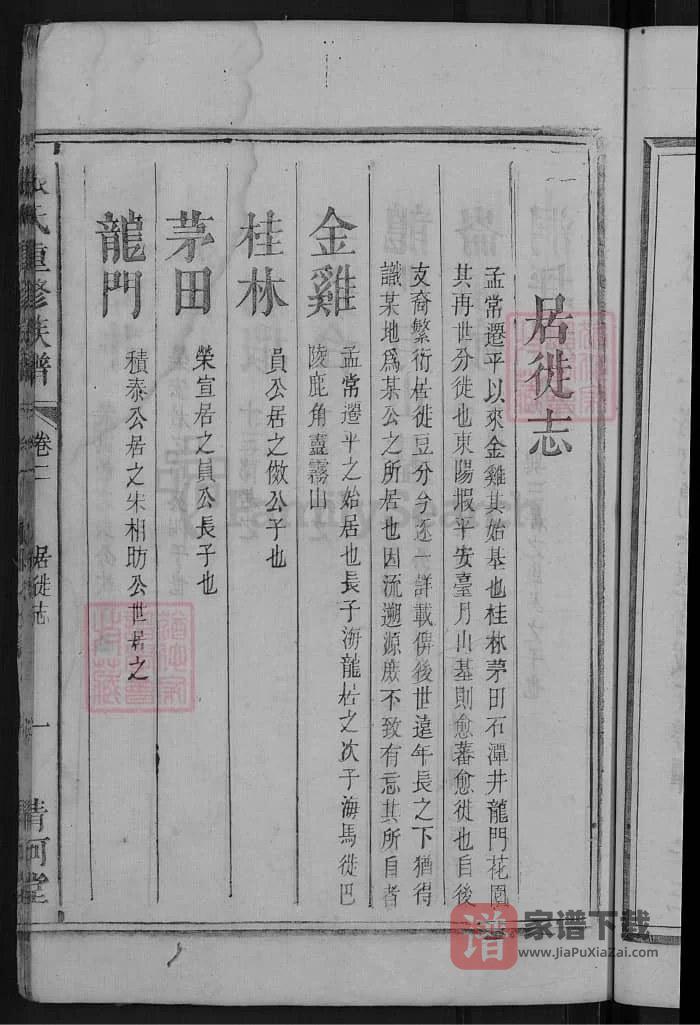 居徙志
孟常遷平以來金雞其始基也桂林茅田石潭井龍門花園
其再世分徙也東陽塅平安臺月山基則愈蕃愈徙也自後
支裔繁衍居徙豆分兮逐一詳載俾後世遠年長之下猶得
識某地爲某公之所居也因流遡源庶不致有忘其所自者
金雞
孟常遷平之始居也長子海龍居之次子海馬徙巴
陵鹿角
霧山
桂林
員公居之倣公子也
茅田
榮宣居之員公長子也
龍門
積泰公居之朱相昉公世居之
氏重修族譜
卷二
居徙志
一
清河堂
家谱下载
www.JiaPuXiaZai.com
谱